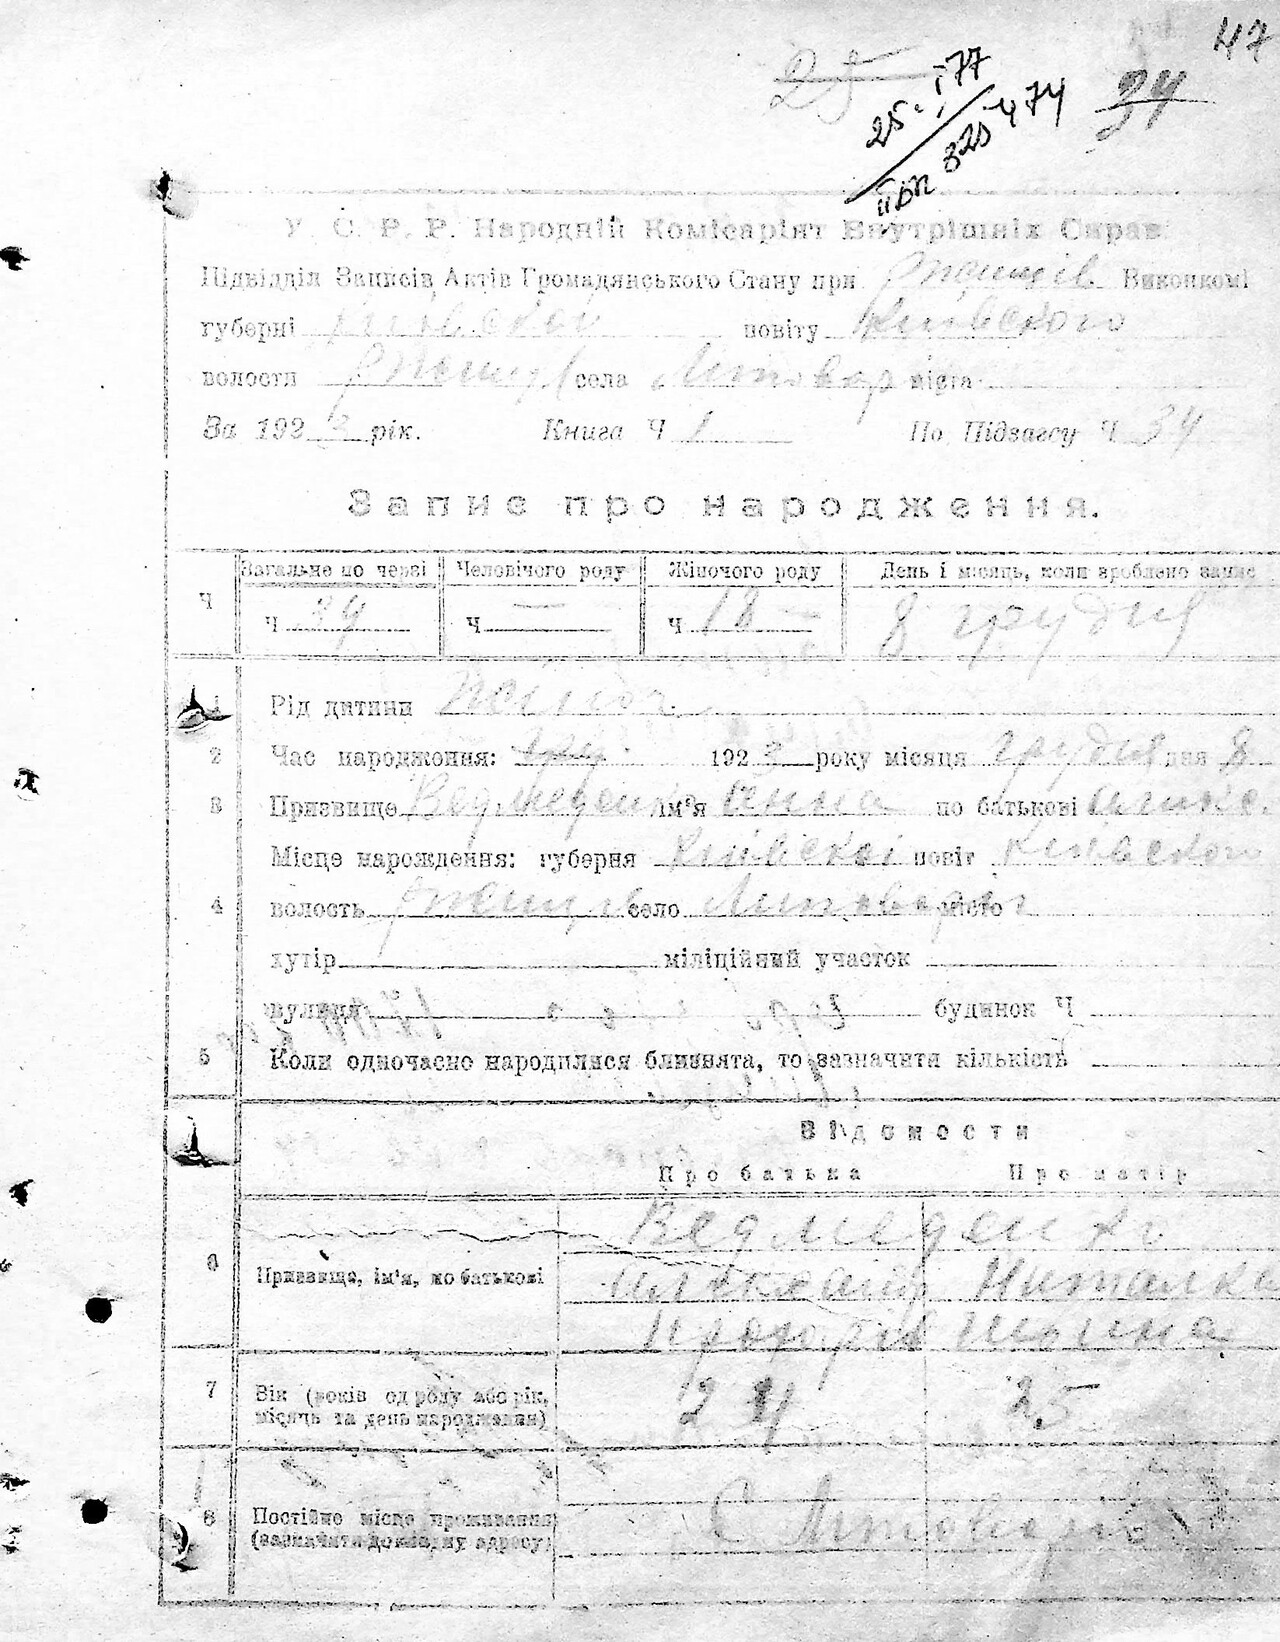 47
25
25. I, 77
34
II БП 325474
У. С. Р. Р. Народній Комісаріят Внутрішніх Справ.
Підвідділ Записів Актів Громадянського Стану при Виконкомі
губерні Київской повіту Київского
волости села міста
За 1923 рік. Книга Ч 1 По Підзагсу Ч 34
Запис про народження.
Ч Загальне по черзі Человічого роду Жіночого роду День і місяць, коли зроблено запис
Ч 34 Ч — Ч 18 — 8 грудня
1 Рід дитини
2 Час народження: 1923 року місяця грудня дня 8
3 Призвище Ведмеденко ім'я Анна по батькові
Місце нарождення: губерня Київскоі повіт Київского
4 волость село місто
хутір міліційний участок
вулиця будинок Ч
5 Коли одночасно народилися близнята, то зазначити кількість
Відомости
Про батька Про матір
Ведмеденко
6 Призвище, ім'я, по батькові Наталка
7 Вік (років од роду або рік, 24 25
місяць та день народження)
8 Постійне місце проживання С
(зазначити докладну адресу)